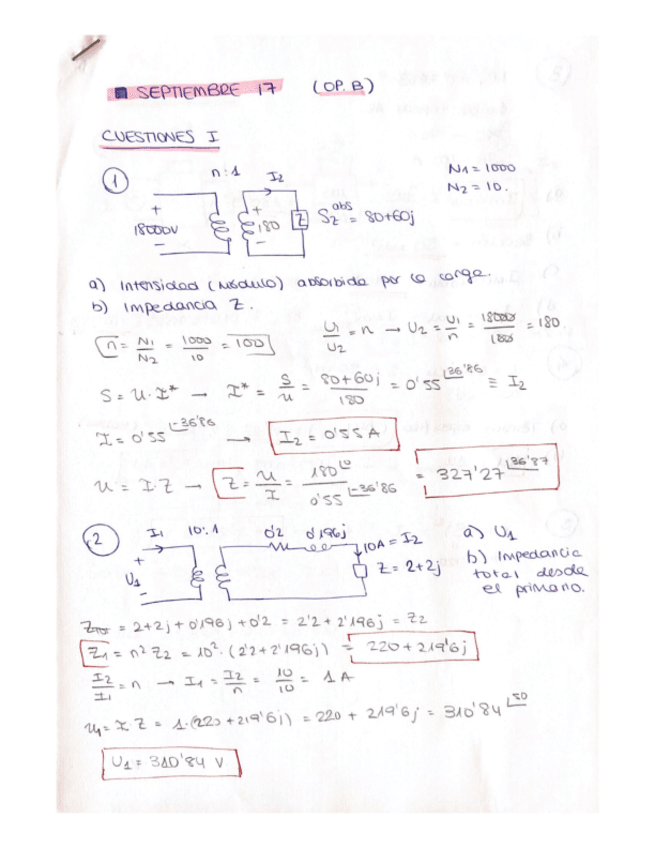 ■ SEPTIEMBRE 17 (OP. B)
CUESTIONES I
① n:1 I2 N1 = 1000
N2 = 10.
+ 18000V − + 180 − Z S_Z^abs = 80+60j
a) Intensidad (Módulo) absorbida por la carga.
b) Impedancia Z.
n = N1/N2 = 1000/10 = 100 U1/U2 = n → U2 = U1/n = 18000/100 = 180.
S = U·I* → I* = S/U = 80+60j/180 = 0'55 ∟36'86 ≡ I2
I = 0'55 ∟-36'86 → I2 = 0'55 A
U = I·Z → Z = U/I = 180∟0/0'55∟-36'86 = 327'27 ∟36'87
② I1 10:1 0'2 0'196j 10A = I2 a) U1
+ U1 − Z = 2+2j b) Impedancia
total desde
el primario.
ZTOT = 2+2j + 0'196j + 0'2 = 2'2 + 2'196j = Z2
Z1 = n² Z2 = 10² · (2'2 + 2'196j) = 220 + 219'6j
I2/I1 = n → I1 = I2/n = 10/10 = 1 A
U1 = I·Z = 1·(220 + 219'6j) = 220 + 219'6j = 310'84 ∟50
U1 = 310'84 V